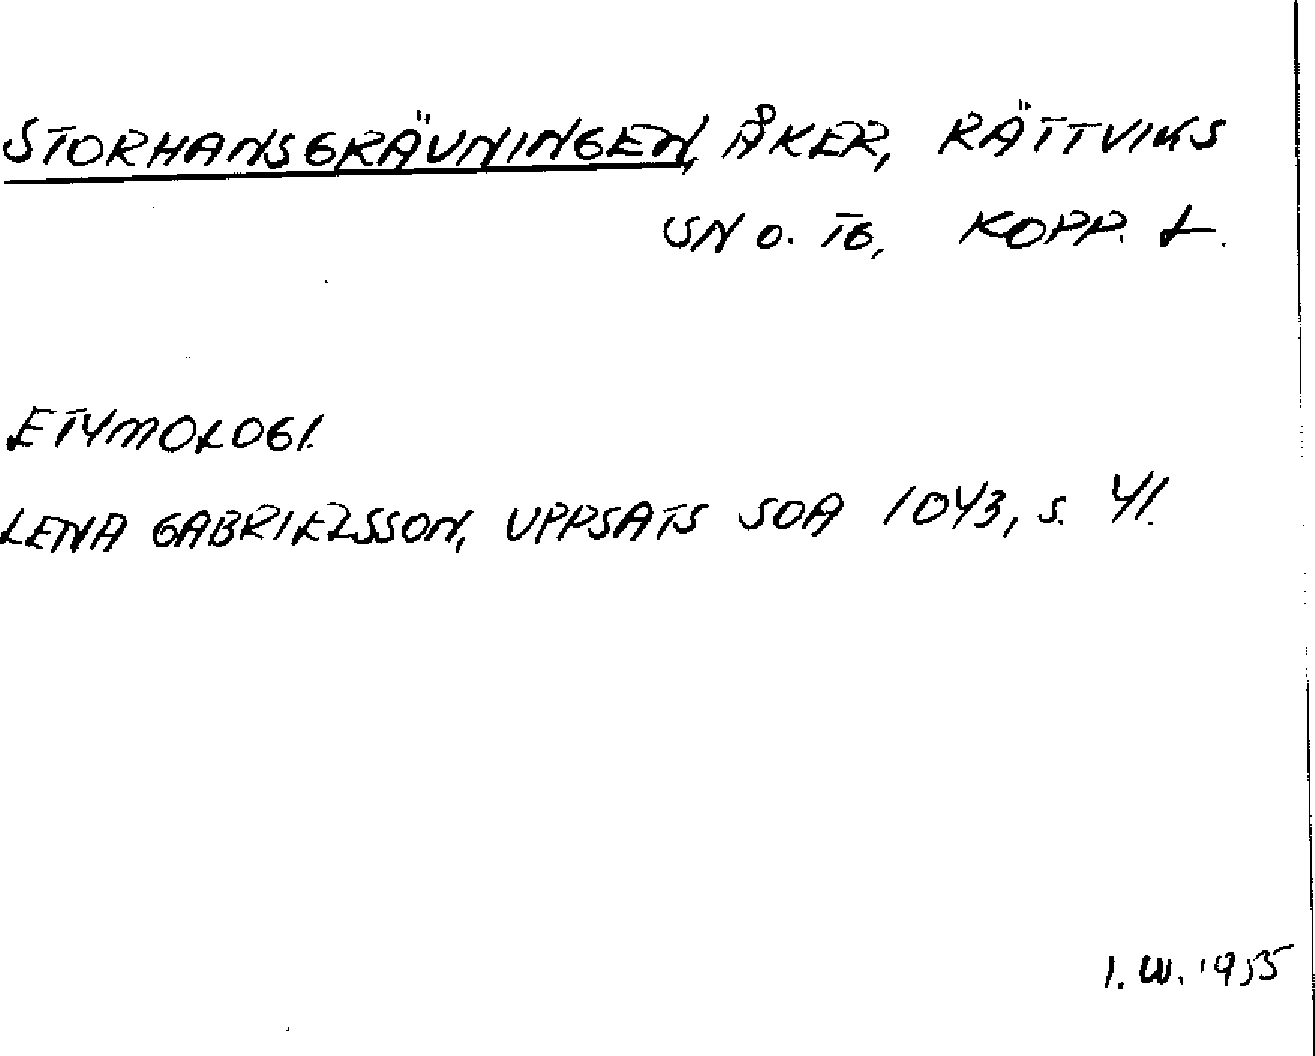 STORHANSGRÄVNINGEN, ÅKER, RÄTTVIKS
SN O. TG, KOPP. L.
ETYMOLOGI.
LENA GABRIELSSON, UPPSATS SOA 1043, S. 41.
I. W. 1955